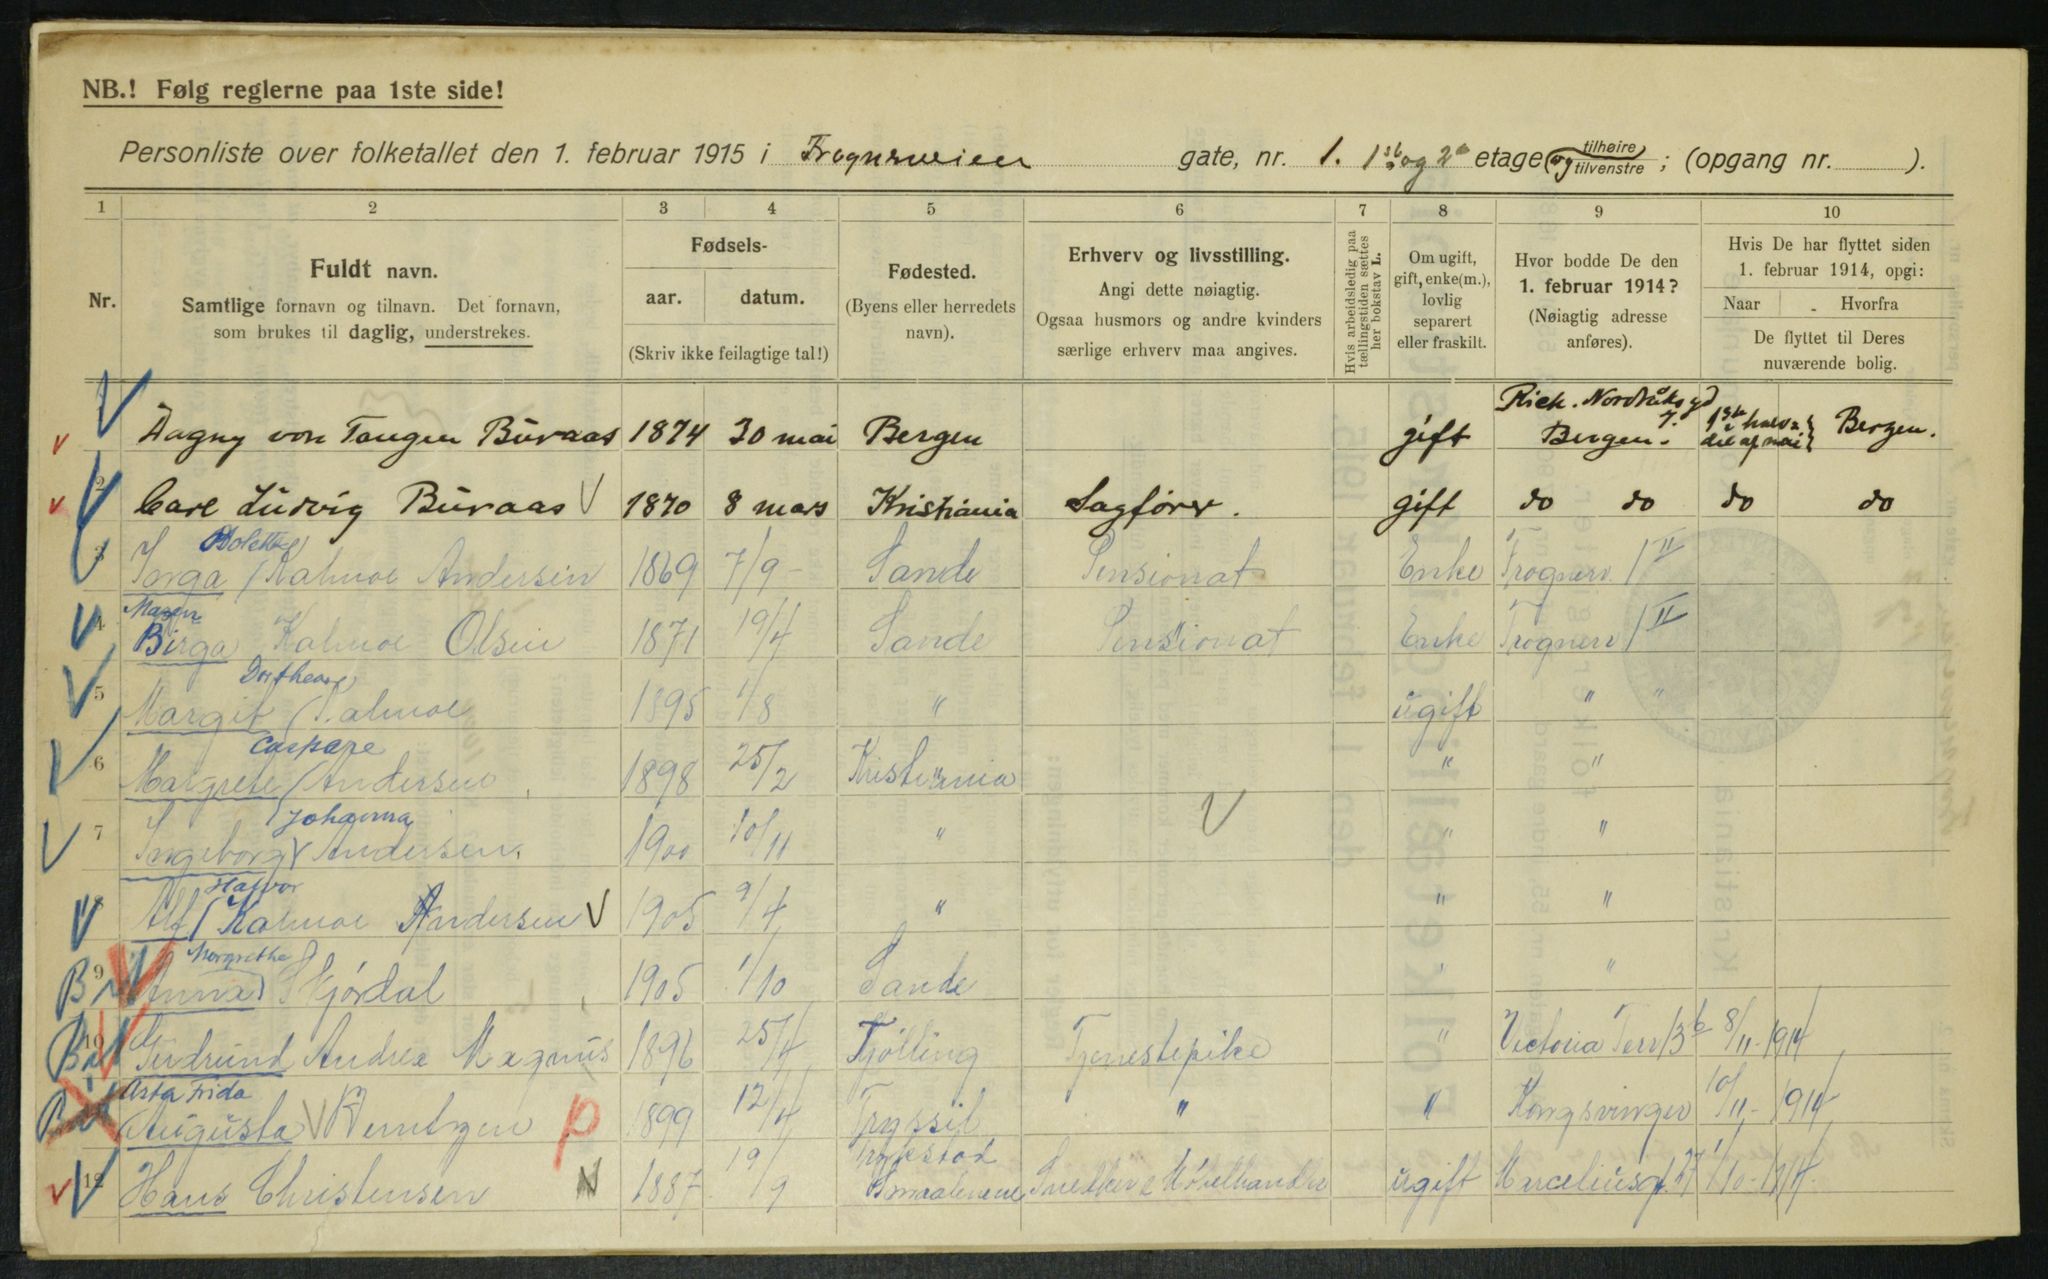 NB.! Følg reglerne paa 1ste side!
Personliste over folketallet den 1. februar 1915 i Frognerveien gate, nr. 1. 1ste og 2den etage (og tilhøire/tilvenstre; (opgang nr. ).
1 2 3 4 5 6 7 8 9 10
Nr.
Fuldt navn.
Samtlige fornavn og tilnavn. Det fornavn, som brukes til daglig, understrekes.
Fødsels-
aar. datum.
(Skriv ikke feilagtige tal!)
Fødested.
(Byens eller herredets navn).
Erhverv og livsstilling.
Angi dette nøiagtig.
Ogsaa husmors og andre kvinders særlige erhverv maa angives.
Hvis arbeidsledig paa tællingstiden sættes her bokstav L.
Om ugift, gift, enke(m.), lovlig separert eller fraskilt.
Hvor bodde De den 1. februar 1914?
(Nøiagtig adresse anføres).
Hvis De har flyttet siden 1. februar 1914, opgi:
Naar - Hvorfra
De flyttet til Deres nuværende bolig.
Dagny von Tangen Buraas 1874 30 mai Bergen gift Rich. Nordråks gd 7. Bergen. 1ste halvdel af mai Bergen.
2 Carl Ludvig Buraas 1870 8 mars Kristiania Sagfører. gift do do do do
3 Inga Bolette Kalmoe Andersen 1869 7/9 Sande Pensionat Enke Frognerv. 1 II
4 Maren Birga Kalmoe Olsen 1871 19/4 Sande Pensionat Enke Frognerv 1 II
5 Margit Dorthea Kalmoe 1895 1/8 " ugift " "
6 Margrete Caspara Andersen 1898 25/2 Kristiania " "
7 Ingeborg Johanna Andersen. 1900 10/11 " " "
8 Alf Halvor Kalmoe Andersen 1905 9/4 " " "
9 Anna Margrethe Hjørdal 1905 1/10 Sande " "
10 Gudrund Andrea Magnus 1896 25/4 Tjølling Tjenestepike " Victoria Terr 13 b 8/11-1914
Asta Frida Augusta Berntzen p 1899 12/4 Tryssil " " Kongsvinger 10/11-1914
12 Hans Christensen 1887 19/9 Trøgstad Smaalenene Snedker & Møbelhandler ugift Marceliusgt. 27 1/10-1914